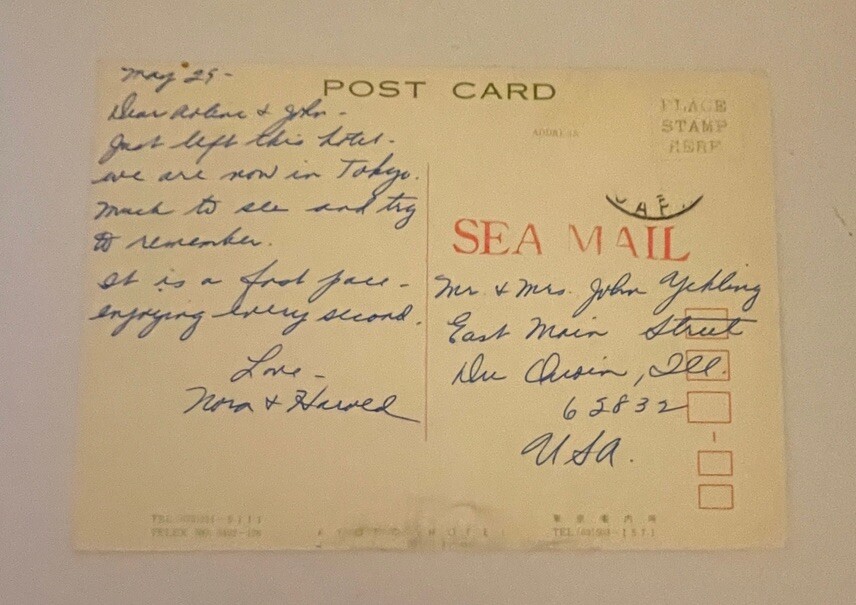 May 29 -
POST CARD
Dear Arlene & John -
Just left this hotel -
we are now in Tokyo.
Much to see and try
to remember.
It is a fast pace -
enjoying every second.
Love -
Nora & Harold
ADDRESS
PLACE
STAMP
HERE
SEA MAIL
Mr. & Mrs. John Yehling
East Main Street
Du Quoin, Ill.
62832
USA.
TEL
TELEX NO.
HOTEL
TEL